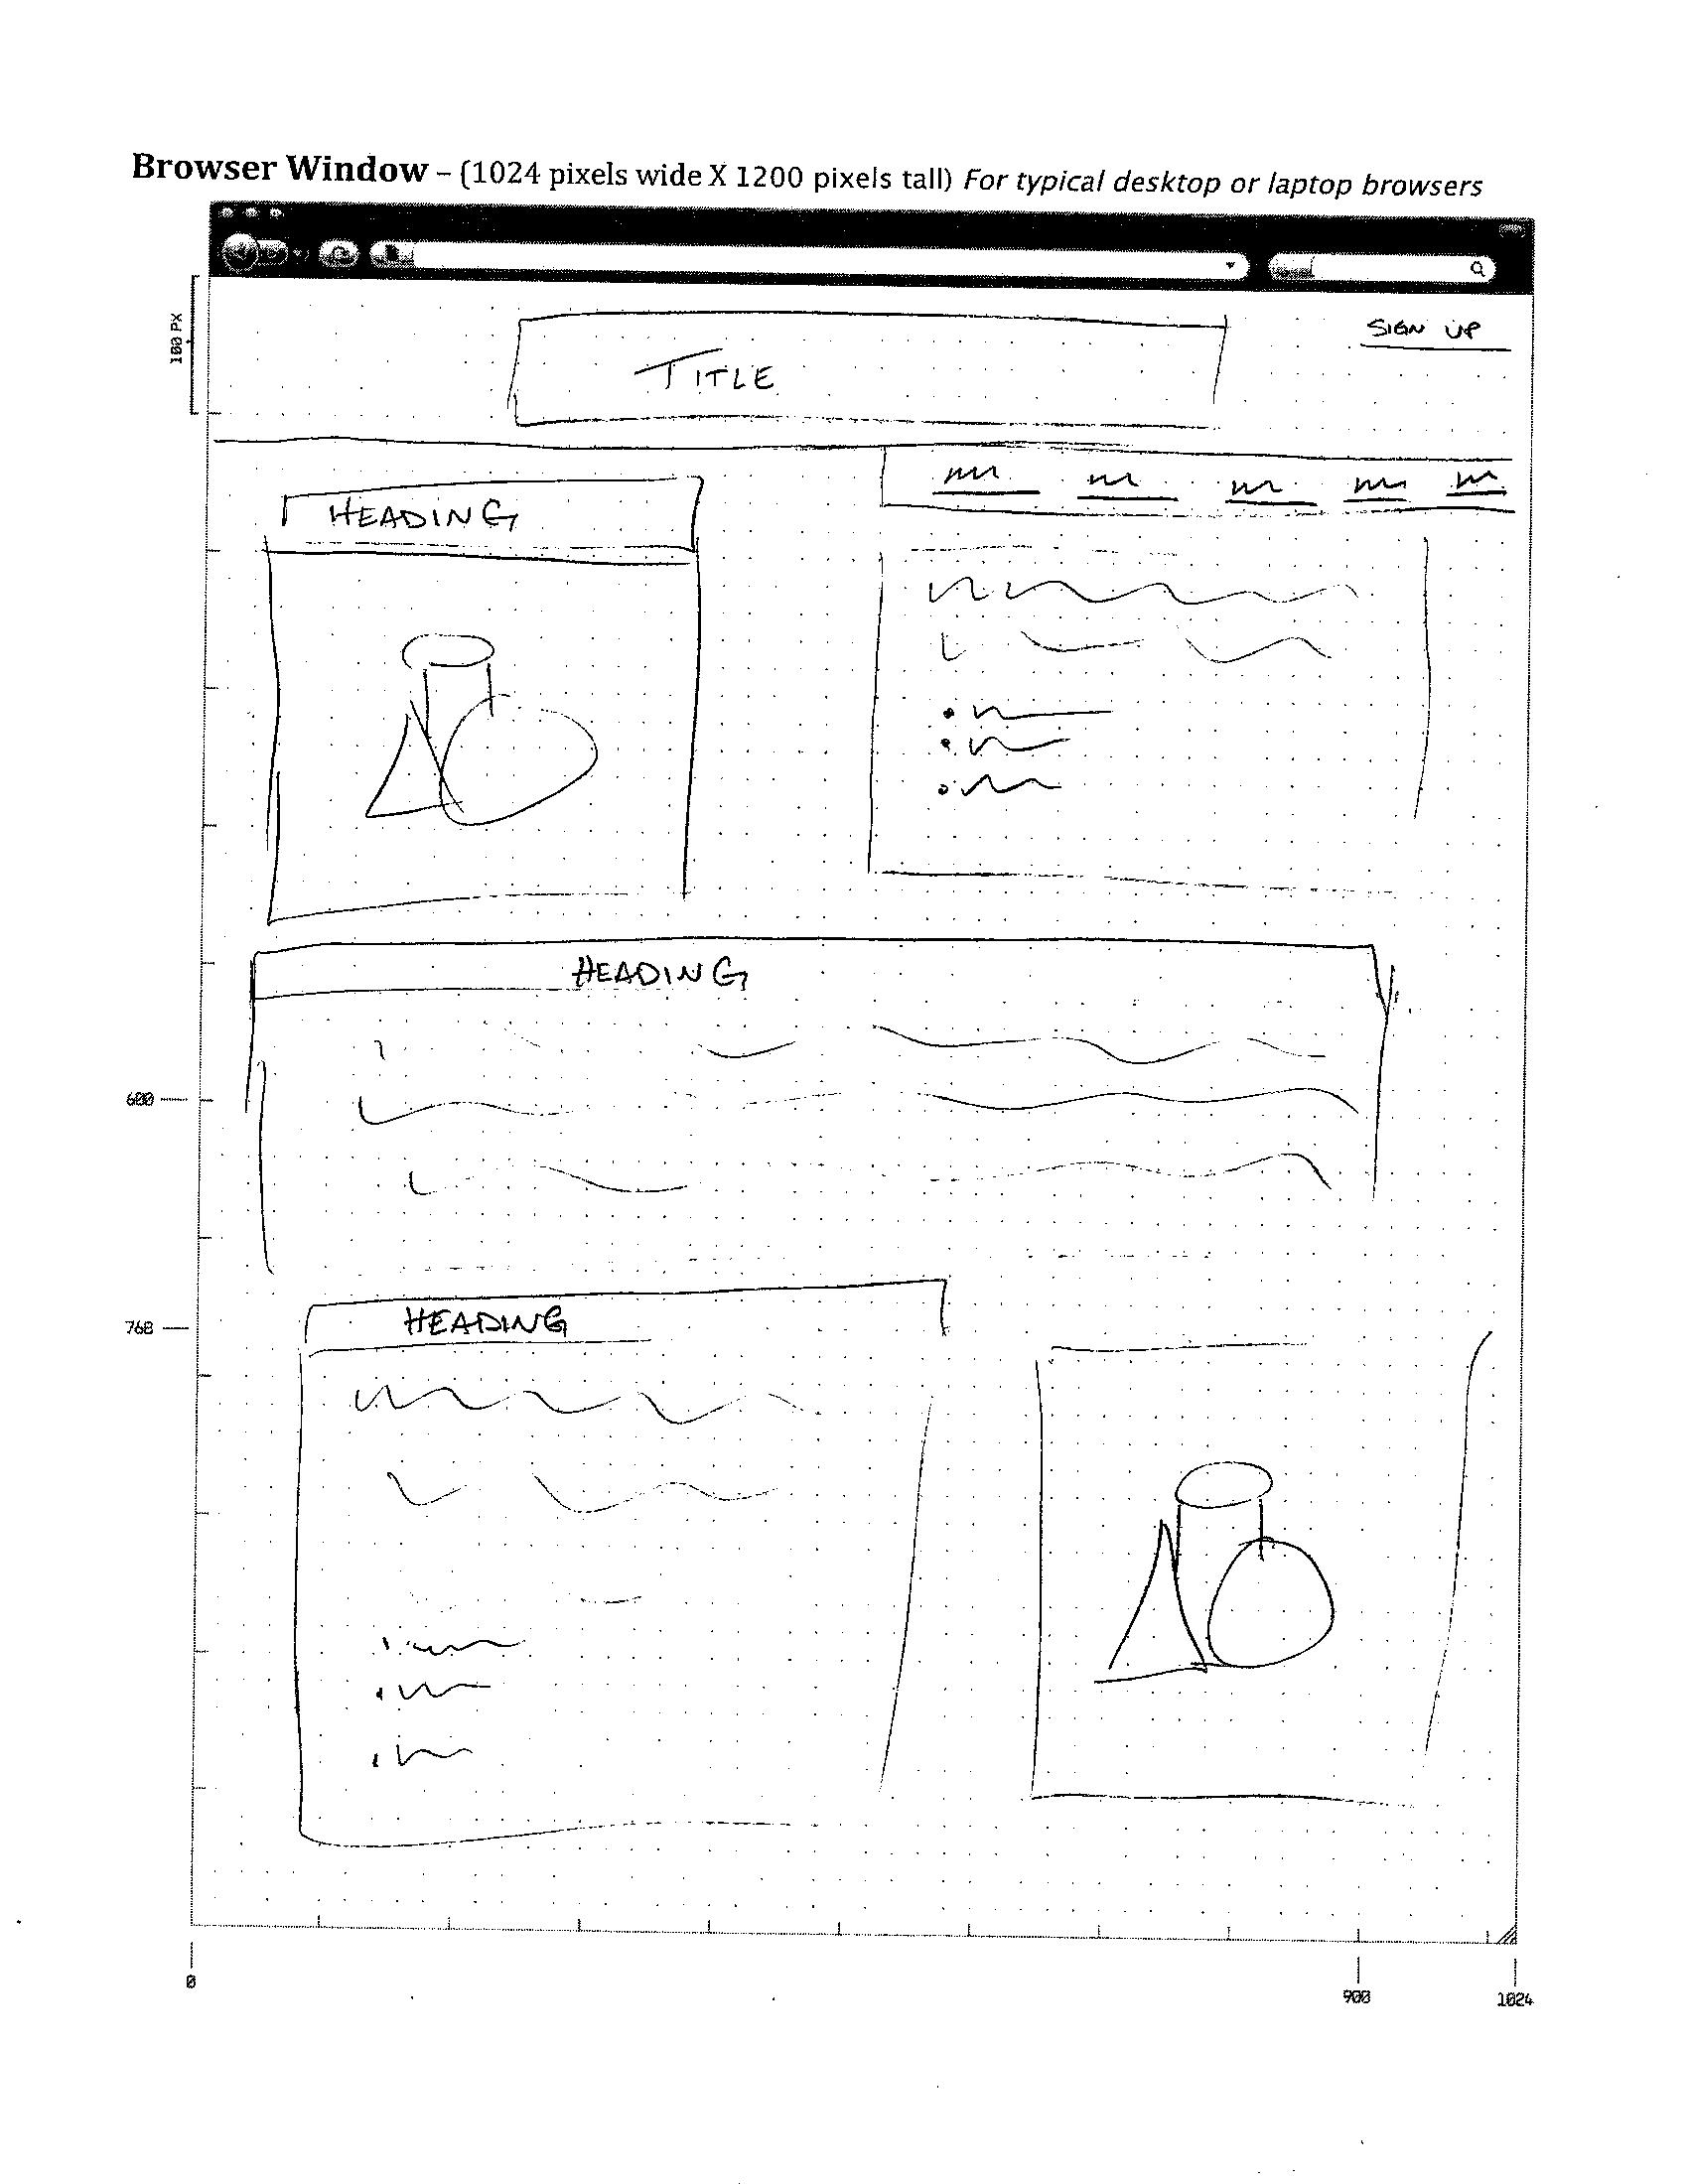 Browser Window – (1024 pixels wide X 1200 pixels tall) For typical desktop or laptop browsers
100 PX
SIGN UP
TITLE
HEADING
HEADING
600
HEADING
768
0
900
1024